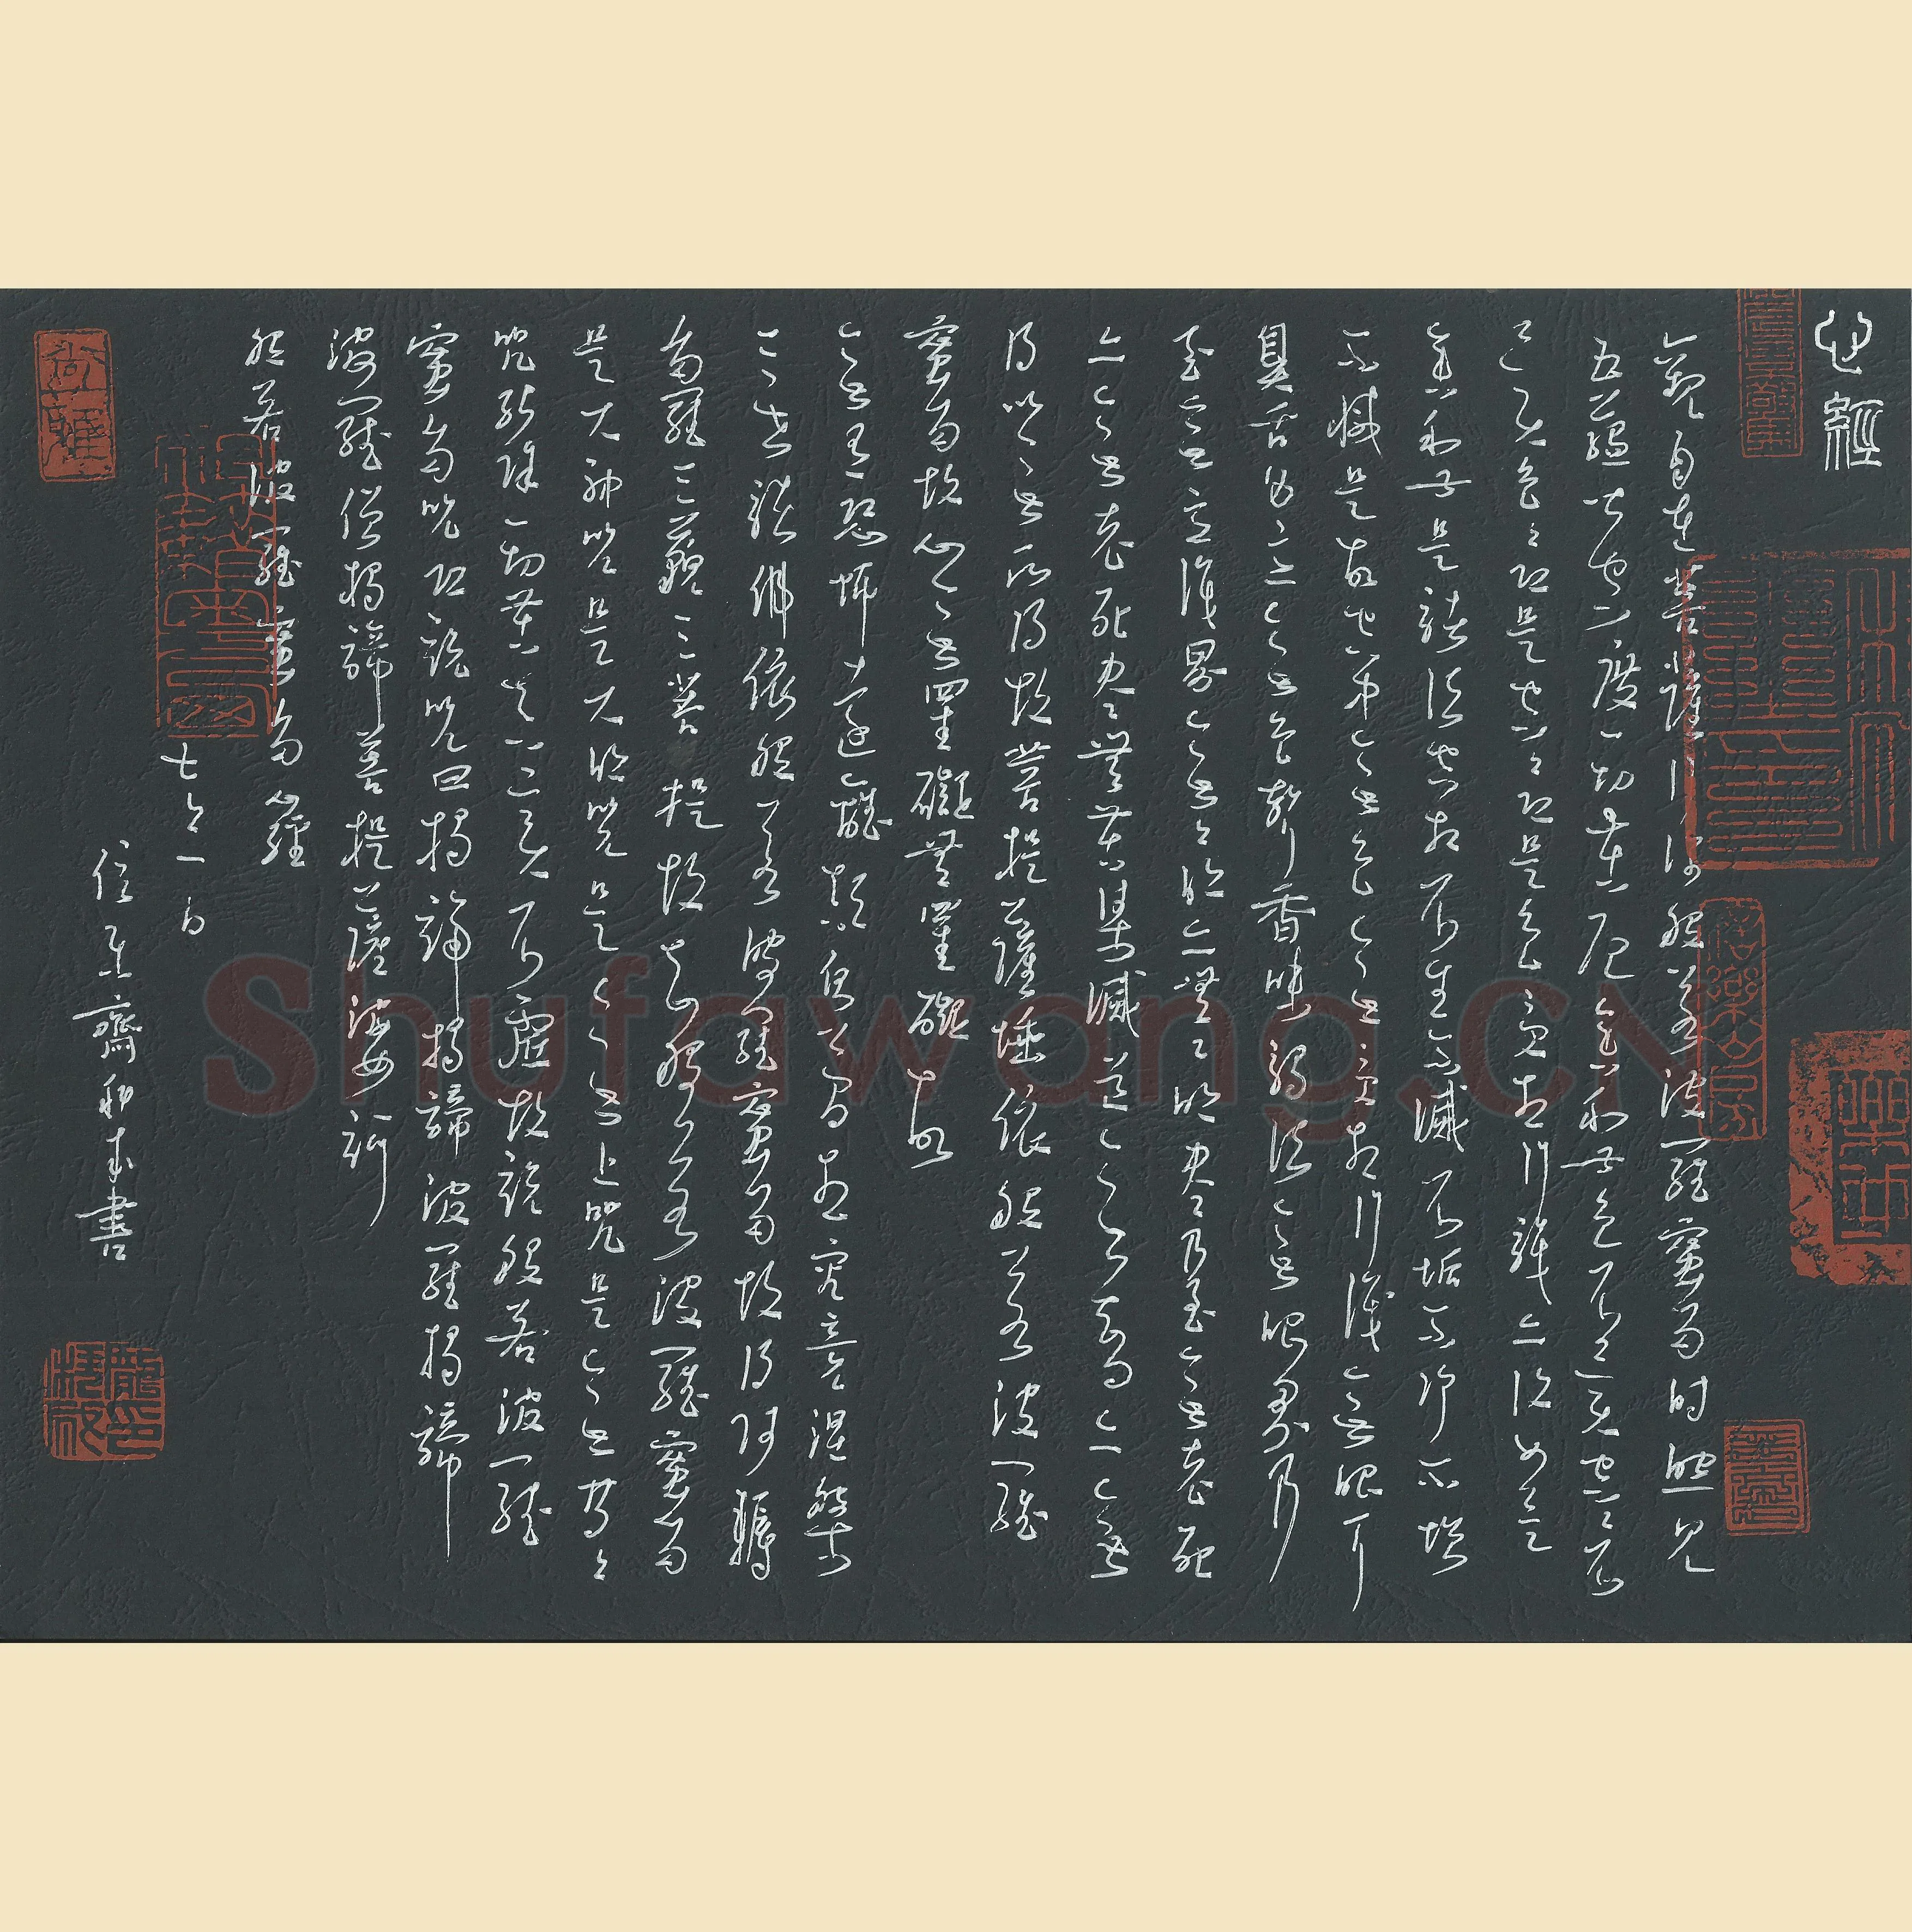 心經
觀自在菩薩行深般若波羅蜜多時照見
五蘊皆空度一切苦厄舍利子色不異空空不
異色色即是空空即是色受想行識亦復如是
舍利子是諸法空相不生不滅不垢不淨不增
不減是故空中無色無受想行識無眼耳
鼻舌身意無色聲香味觸法無眼界乃
至無意識界無無明亦無無明盡乃至無老死
亦無老死盡無苦集滅道無智亦無
得以無所得故菩提薩埵依般若波羅
蜜多故心無罣礙無罣礙故
無有恐怖遠離顛倒夢想究竟涅槃
三世諸佛依般若波羅蜜多故得阿耨
多羅三藐三菩提故知般若波羅蜜多
是大神咒是大明咒是無上咒是無等等
咒能除一切苦真實不虛故說般若波羅
蜜多咒即說咒曰揭諦揭諦波羅揭諦
波羅僧揭諦菩提薩婆訶
般若波羅蜜多心經
齋 書
Shufawang.CN